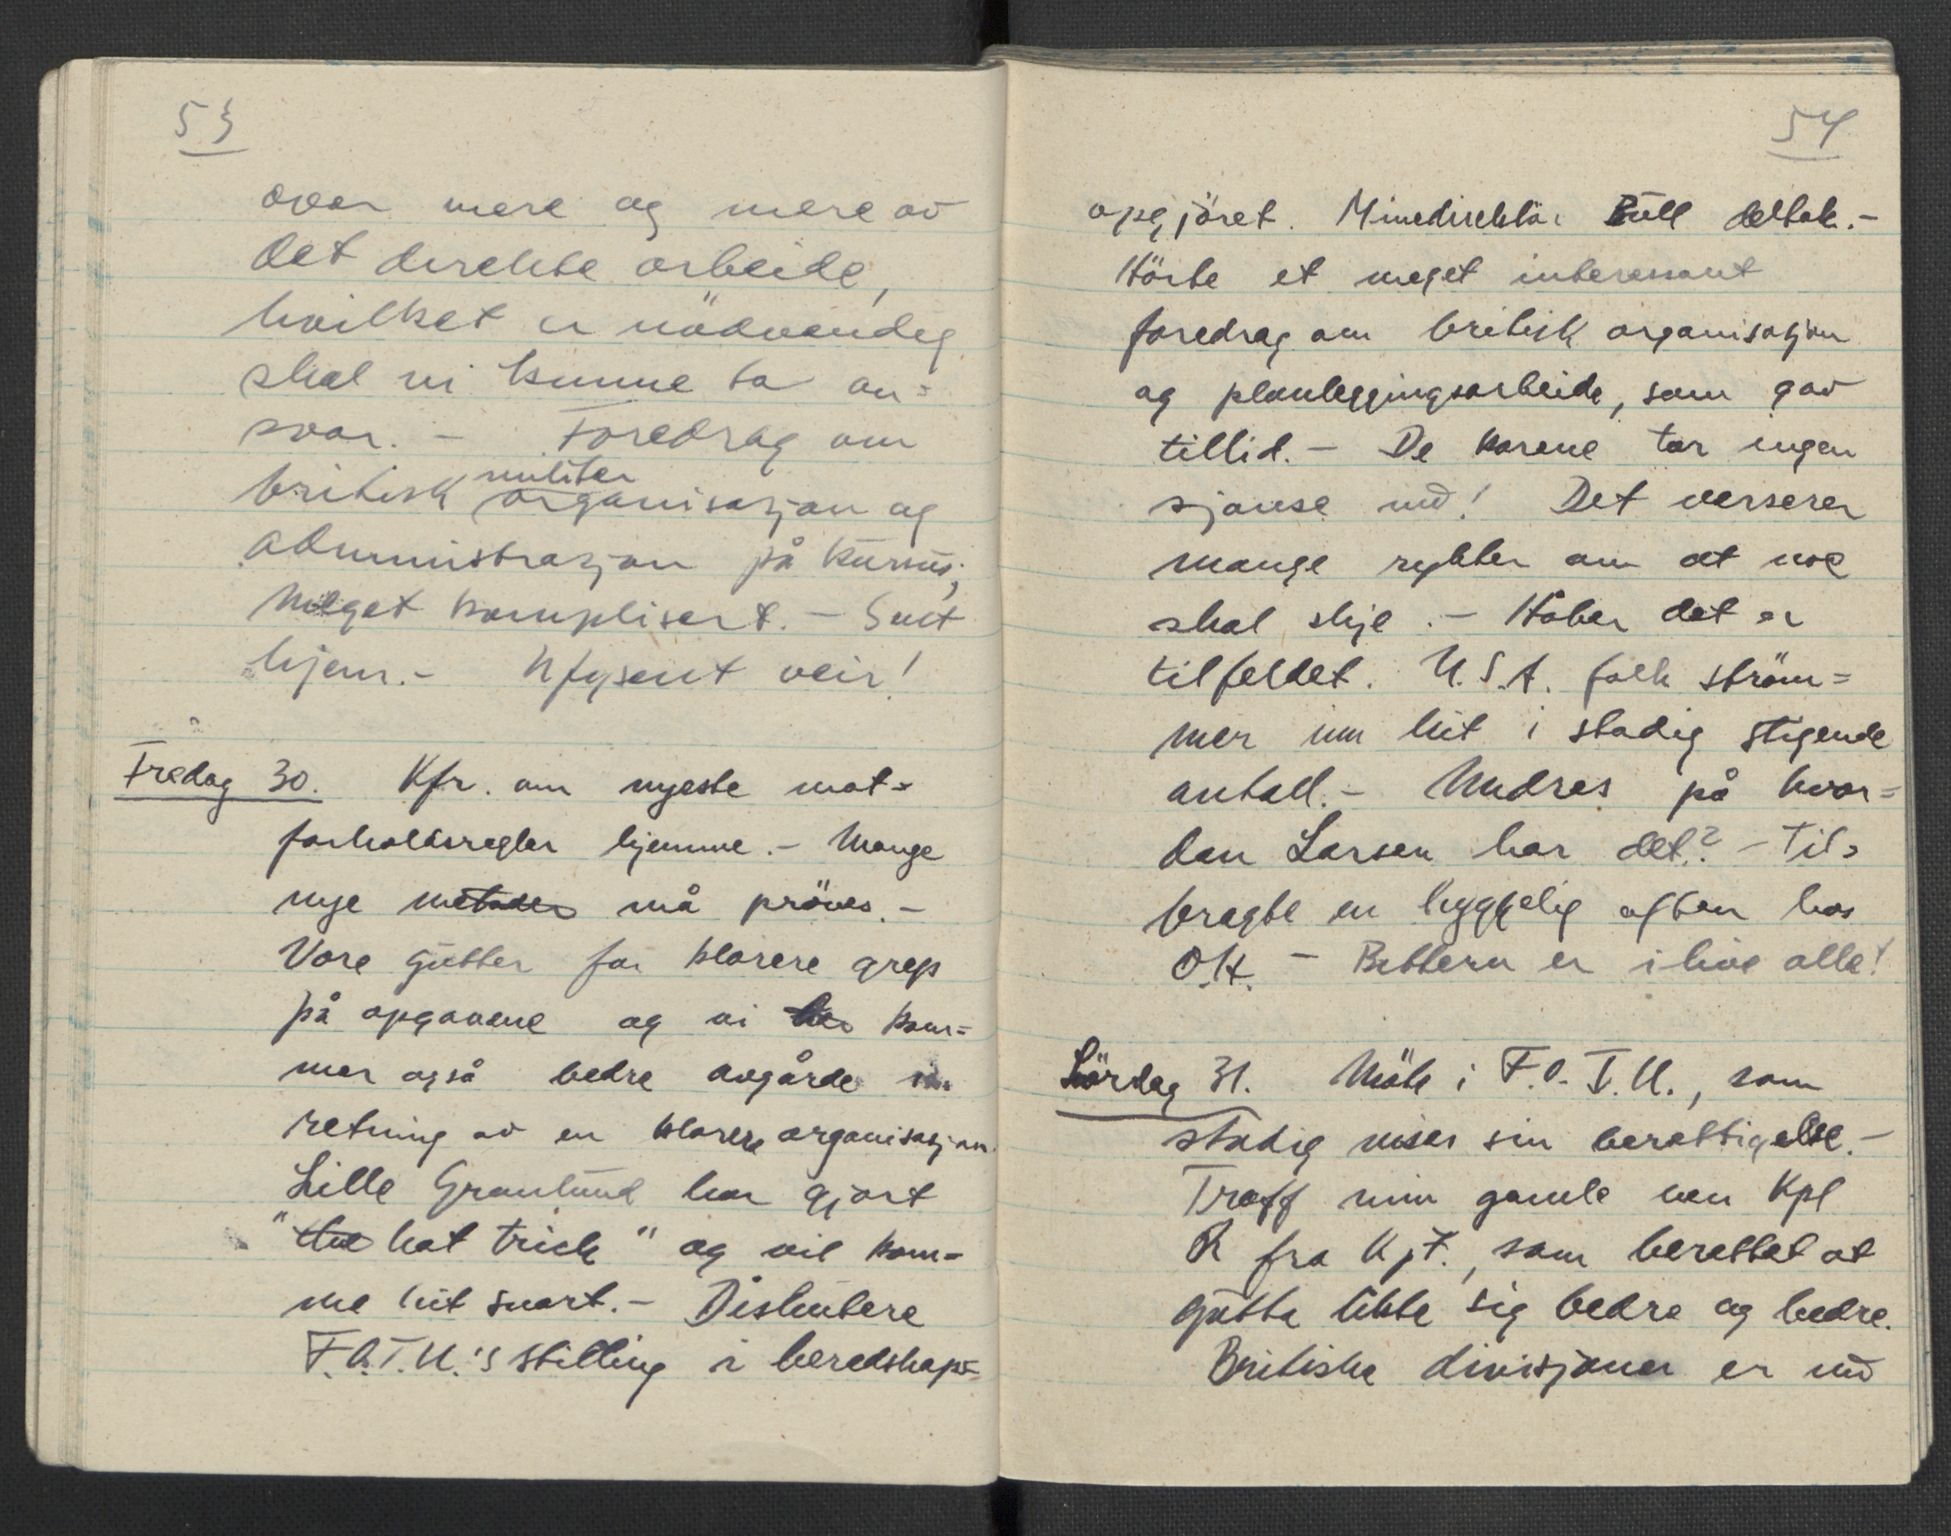 53
over mere og mere av
det direkte arbeide,
hvilket er nödvendig
skal vi kunne ta an=
svar. - Foredrag om
militær
britisk organisasjon og
administrasjon på kursus;
Meget komplisert. - Sent
hjem. - Ufysent veir!
Fredag 30. Kfr. om nyeste mot=
forholdsregler hjemme. - Mange
nye metoder må pröves. -
Vore gutter får klarere grep
på opgavene og vi kom=
mer også bedre avgårde i
retning av en klarere organisasjon.
Lille Granlund har gjort
"the hat trick" og vil kom=
me hit snart. - Diskutere
F.O.T.U.'s stilling i beredskaps=
54
opgjöret. Minedirektör Bull deltok. -
Hörte et meget interessant
foredrag om britisk organisasjon
og planleggingsarbeide, som gav
tillid. - De karene tar ingen
sjanse nu! Det verserer
mange rykter om at noe
skal skje. - Håber det er
tilfeldet. U.S.A. folk ström=
mer inn hit i stadig stigende
antall. - Undres på hvor=
dan Larsen har det? - Til=
bragte en hyggelig aften hos
O.H. - Bettern er i live alle!
Lördag 31. Möte i F.O.T.U., som
stadig viser sin berettigelse. -
Traff min gamle ven Kpt
R fra Kpt., som berettet at
gutta likte sig bedre og bedre.
Britiske divisjoner er nu